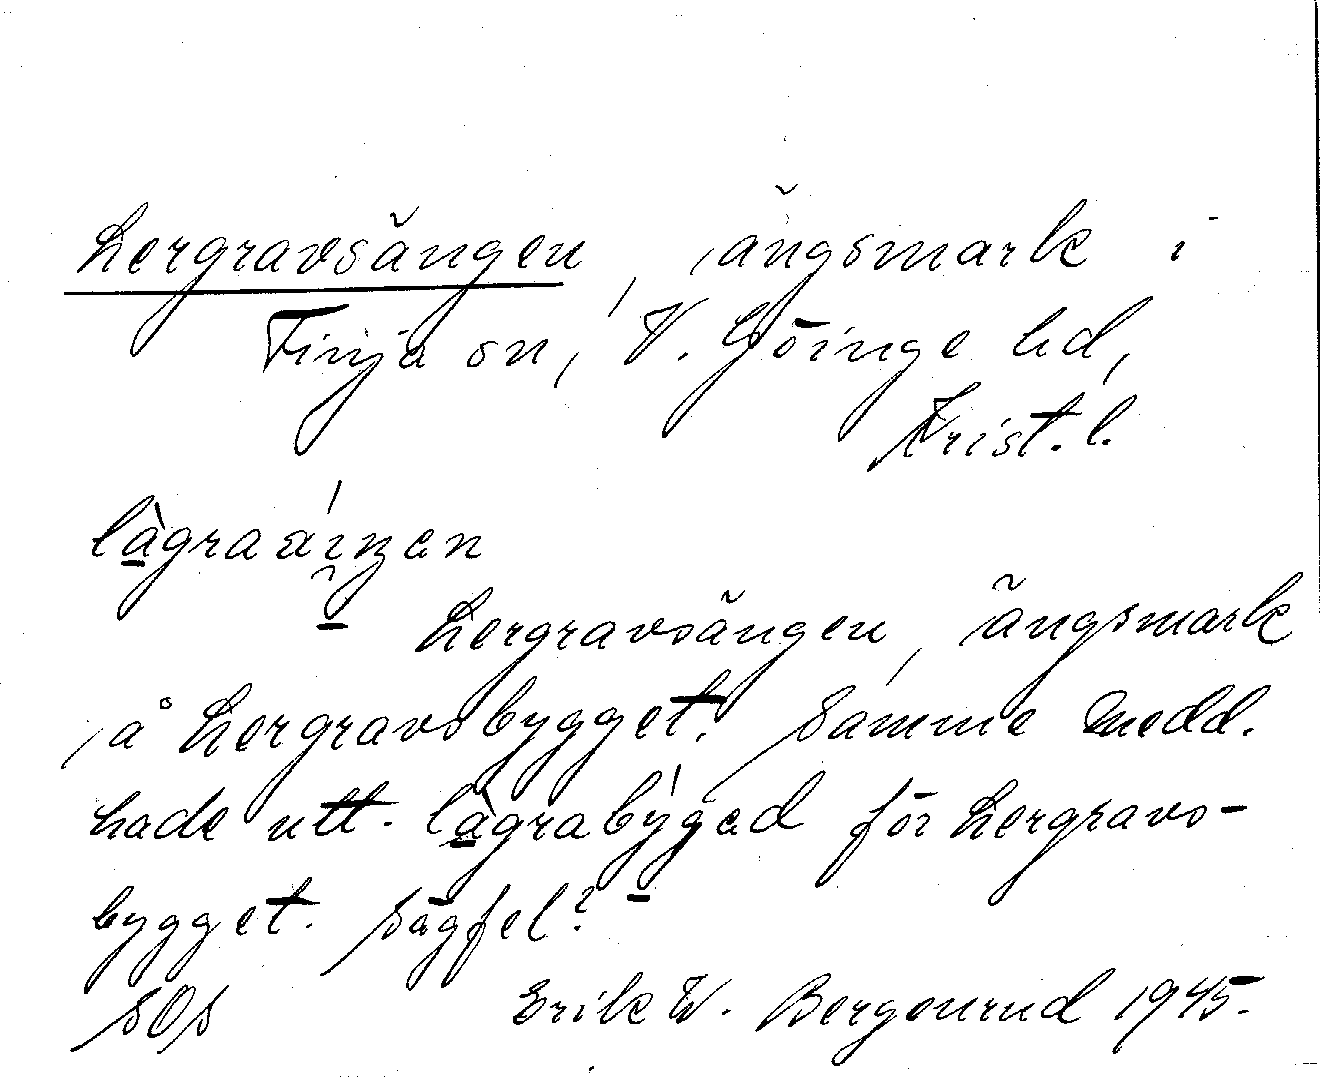 Lergravsängen, ängsmark i
Finja sn, V. Göinge hd,
Krist. l.
Lergravsängen, ängsmark
å Lergravsbygget. Samme medd.
hade utt. lägrabýgəd för Lergravs-
bygget. Sägfel?
SOS Erik W. Bergenrud 1945.